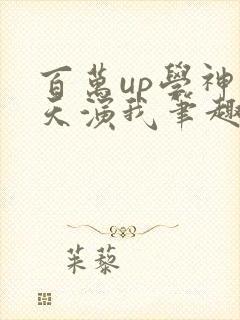 百萬up學神
天演我筆趣
茱藜